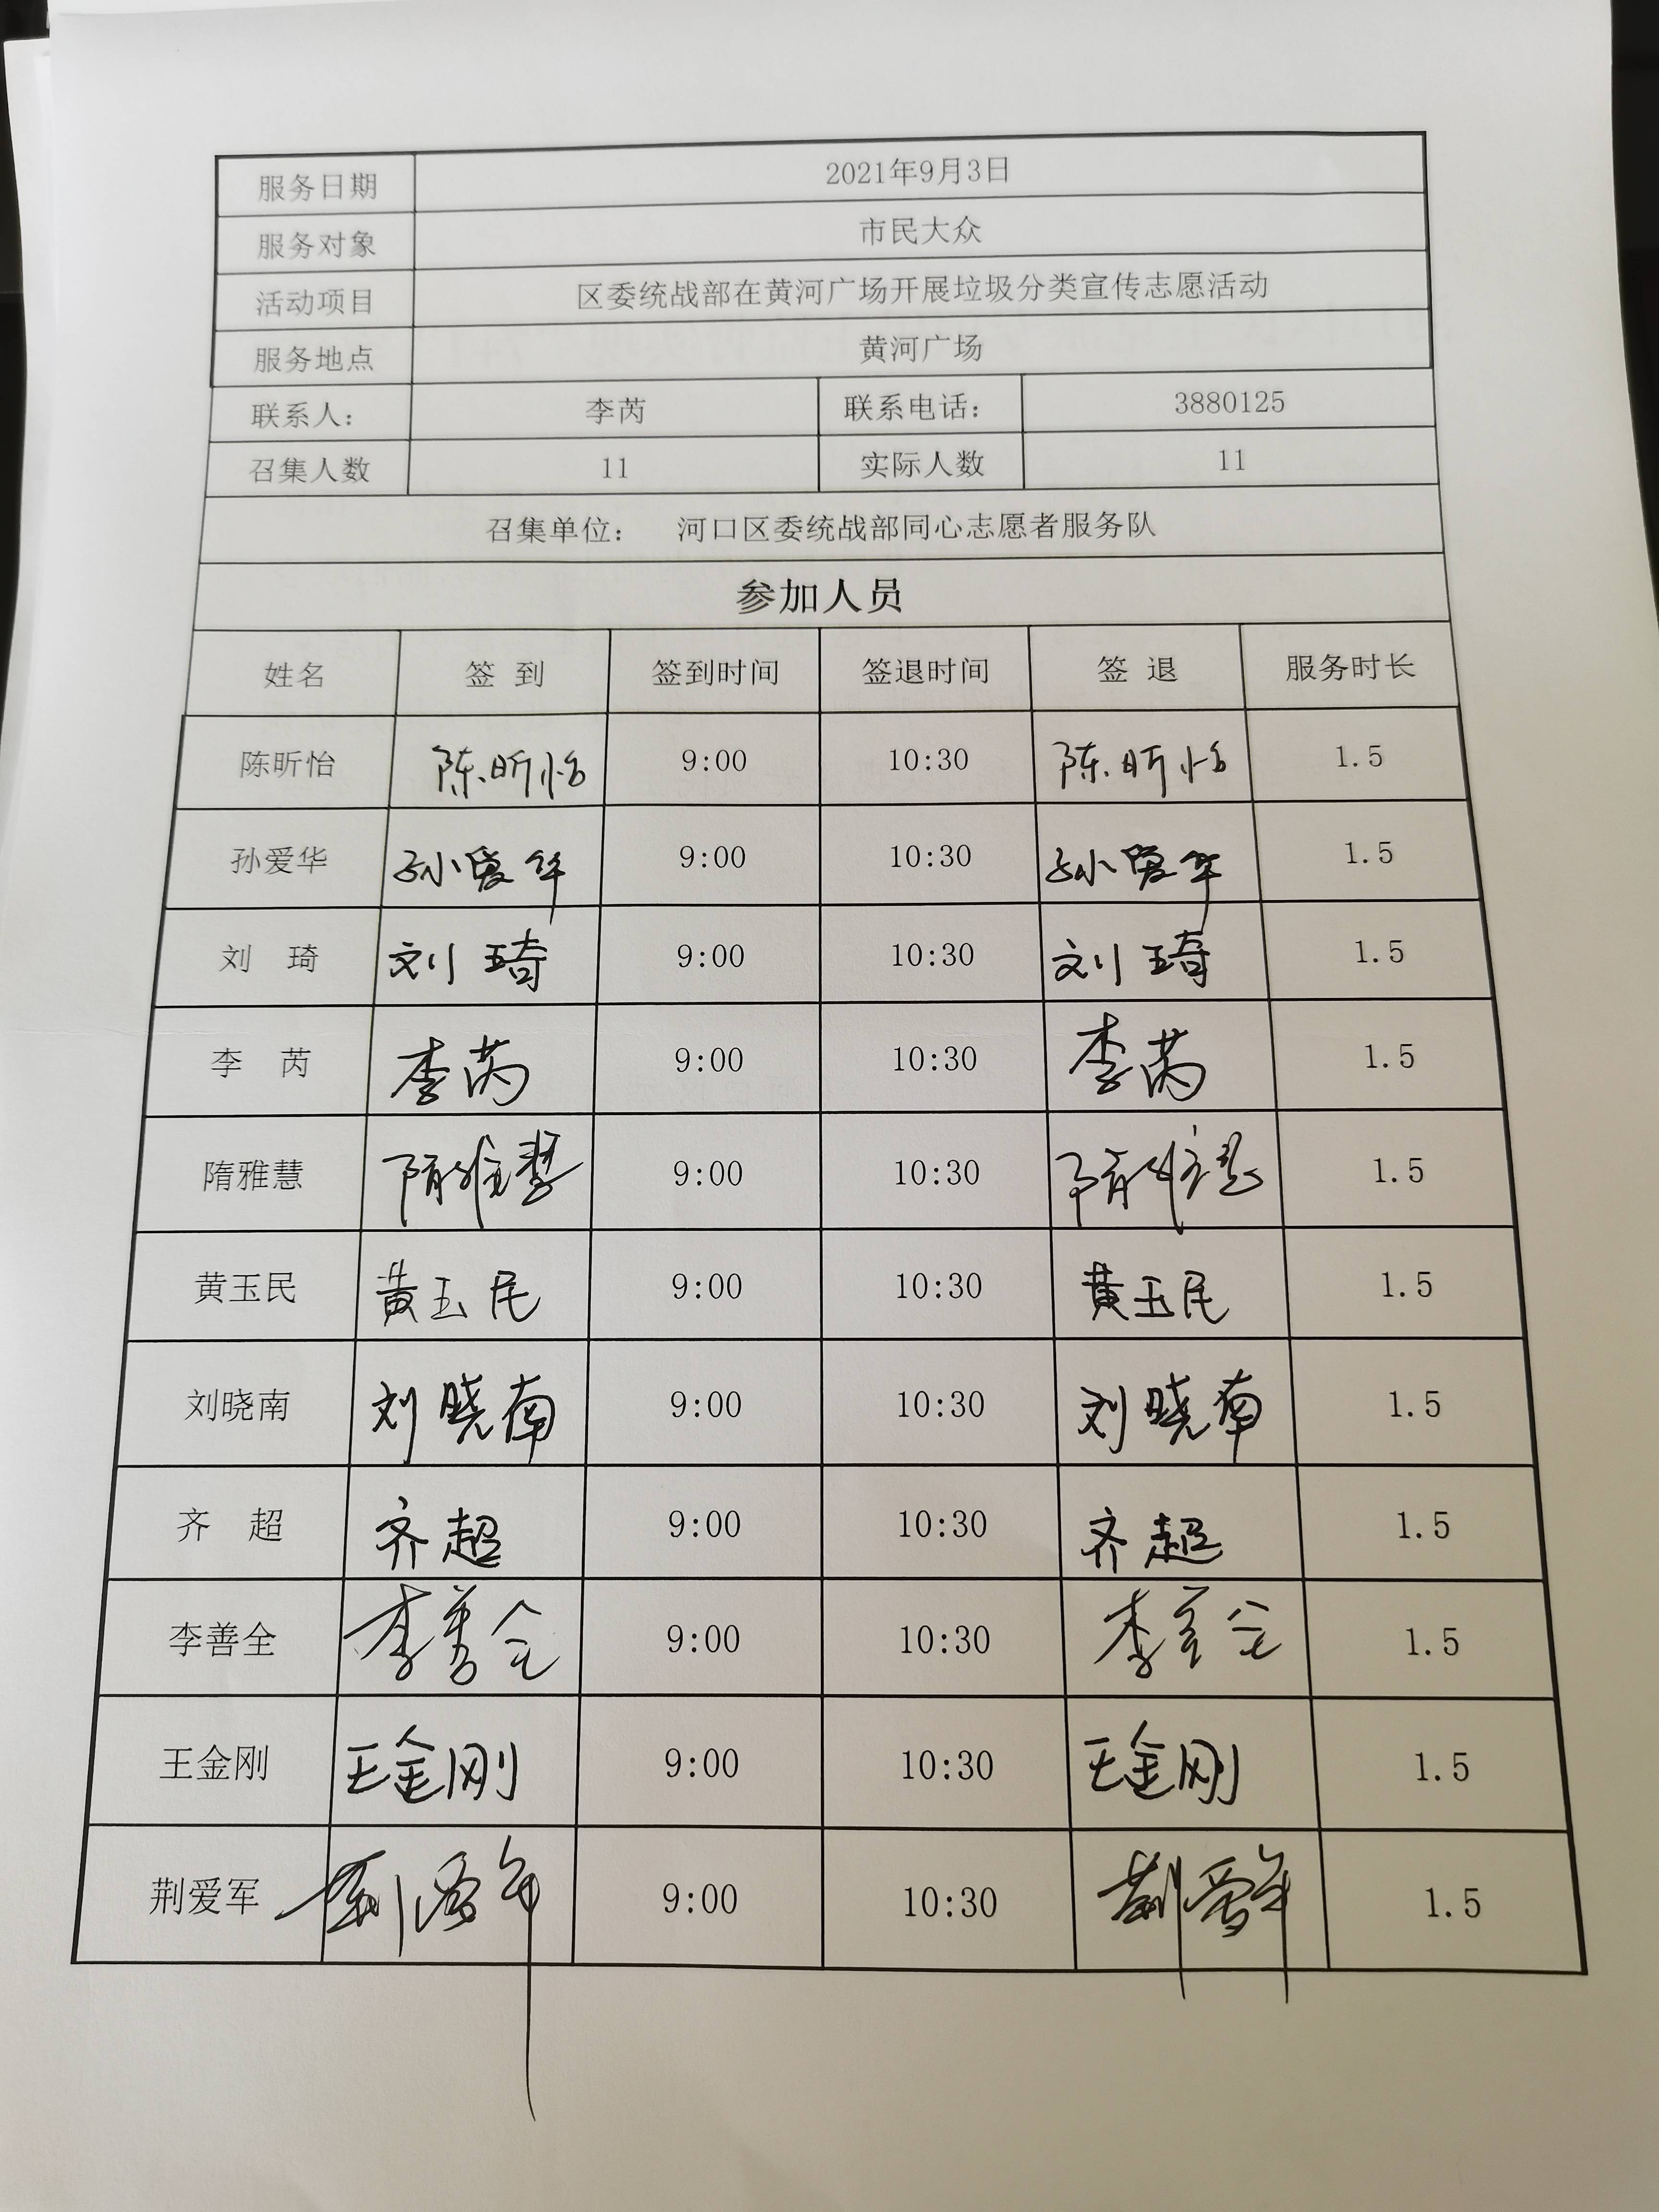 服务日期 2021年9月3日
服务对象 市民大众
活动项目 区委统战部在黄河广场开展垃圾分类宣传志愿活动
服务地点 黄河广场
联系人： 李芮 联系电话： 3880125
召集人数 11 实际人数 11
召集单位： 河口区委统战部同心志愿者服务队
参加人员
姓名 签 到 签到时间 签退时间 签 退 服务时长
陈昕怡 陈昕怡 9:00 10:30 陈昕怡 1.5
孙爱华 孙爱华 9:00 10:30 孙爱华 1.5
刘 琦 刘琦 9:00 10:30 刘琦 1.5
李 芮 李芮 9:00 10:30 李芮 1.5
隋雅慧 隋雅慧 9:00 10:30 隋雅慧 1.5
黄玉民 黄玉民 9:00 10:30 黄玉民 1.5
刘晓南 刘晓南 9:00 10:30 刘晓南 1.5
齐 超 齐超 9:00 10:30 齐超 1.5
李善全 李善全 9:00 10:30 李善全 1.5
王金刚 王金刚 9:00 10:30 王金刚 1.5
荆爱军 荆爱军 9:00 10:30 荆爱军 1.5